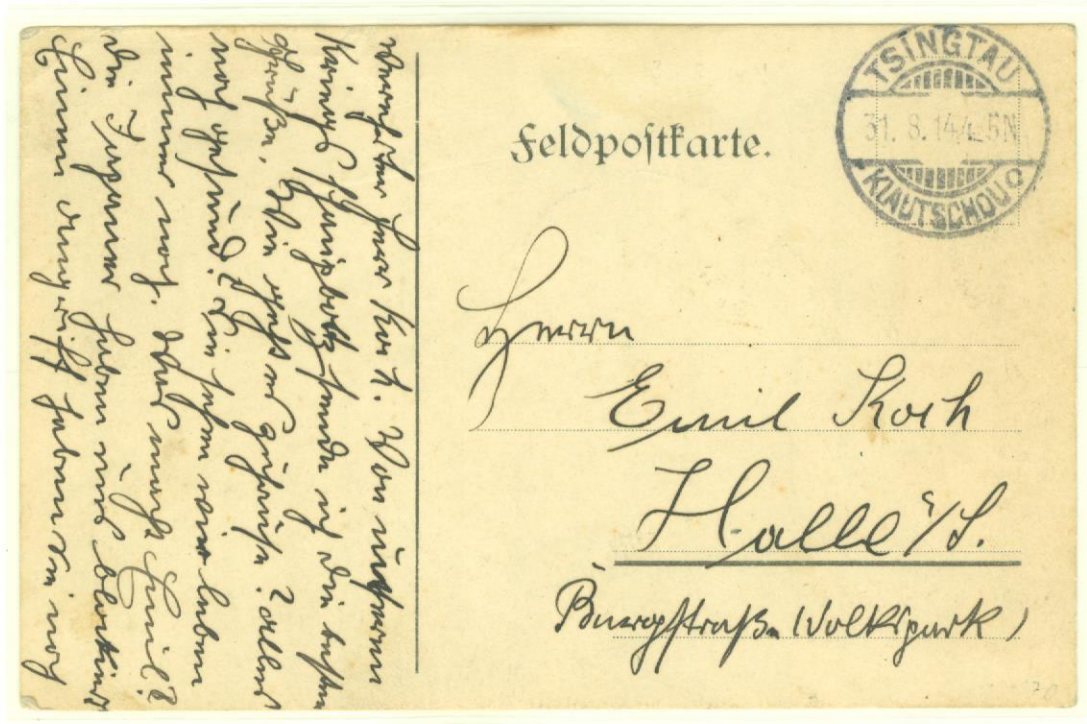 TSINGTAU
31. 8. 14 4-5N
KIAUTSCHOU
Feldpostkarte.
Herrn
Emil Koch
Halle a/S.
Burgstraße (Volkspark)
Verehrter Herr Koch. Von unserem
Kriegs Schauplatz sende ich die besten
Grüße. Wie geht es zuhause? alles
noch gesund? Sie sehen wir leben
immer noch. Was macht Emil?
die Japaner haben uns blockiert
Einen angriff haben sie noch